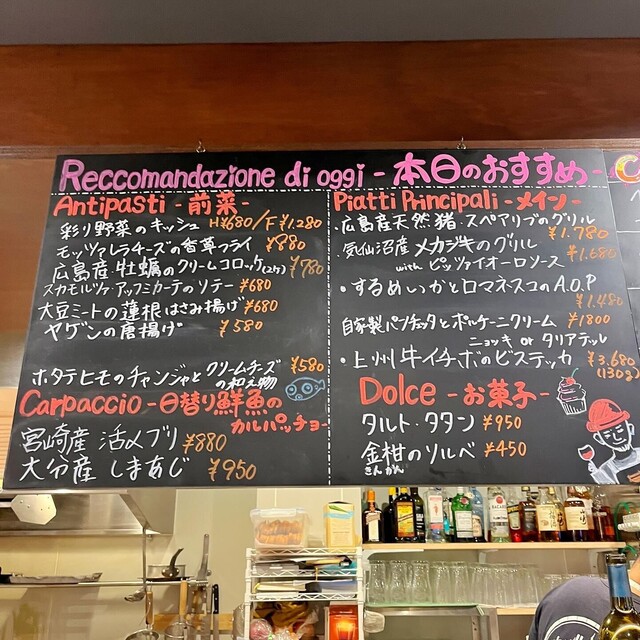 Reccomandazione di oggi - 本日のおすすめ -
Antipasti - 前菜 -
彩り野菜のキッシュ H¥680/F¥1.280
モッツァレラチーズの香草フライ ¥880
広島産牡蠣のクリームコロッケ(2ヶ) ¥780
スカモルツァ・アッフミカーテのソテー ¥680
大豆ミートの蓮根はさみ揚げ ¥680
ヤゲンの唐揚げ ¥580
ホタテヒモのチャンジャとクリームチーズの和え物 ¥580
Carpaccio - 日替り鮮魚の
カルパッチョ -
宮崎産 活〆ブリ ¥880
大分産 しまあじ ¥950
Piatti Principali - メイン -
・広島産天然猪・スペアリブのグリル
¥1.780
・気仙沼産メカジキのグリル ¥1.680
with ピッツァイオーロソース
・するめいかとロマネスコのA.O.P
¥1.480
自家製パンチェッタとポルチーニクリーム ¥1800
ニョッキ or タリアテッレ
・上州牛イチボのビステッカ ¥3.680
(130g)
Dolce - お菓子 -
タルト・タタン ¥950
金柑のソルベ ¥450
きんかん